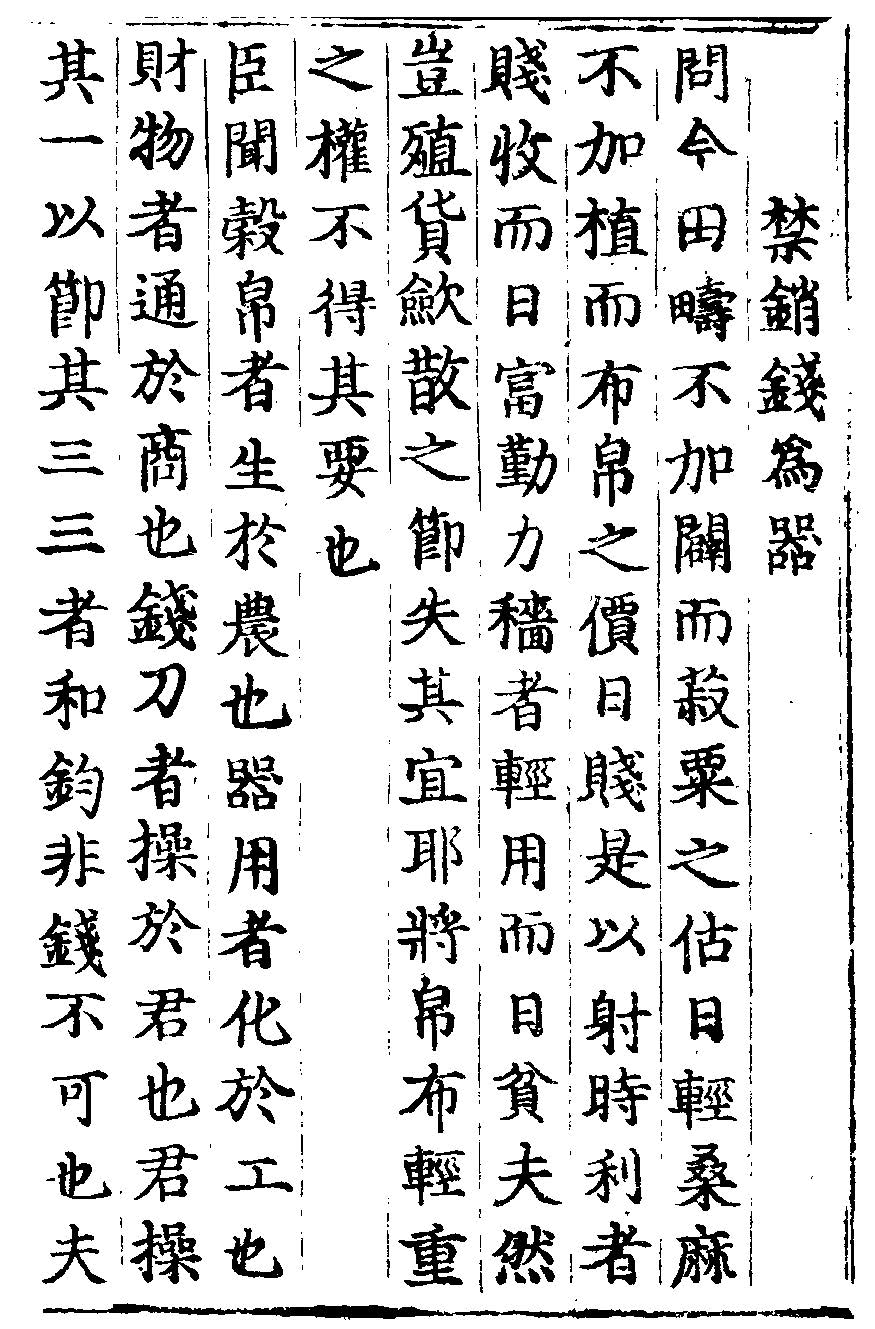 禁銷錢爲器
問今田疇不加闢而菽粟之估日輕桑麻
不加植而布帛之價日賤是以射時利者
賤收而日富勤力穡者輕用而日貧夫然
豈殖貨歛散之節失其宜耶將帛布輕重
之權不得其要也
臣聞穀帛者生於農也器用者化於工也
財物者通於商也錢刀者操於君也君操
其一以節其三三者和鈞非錢不可也夫